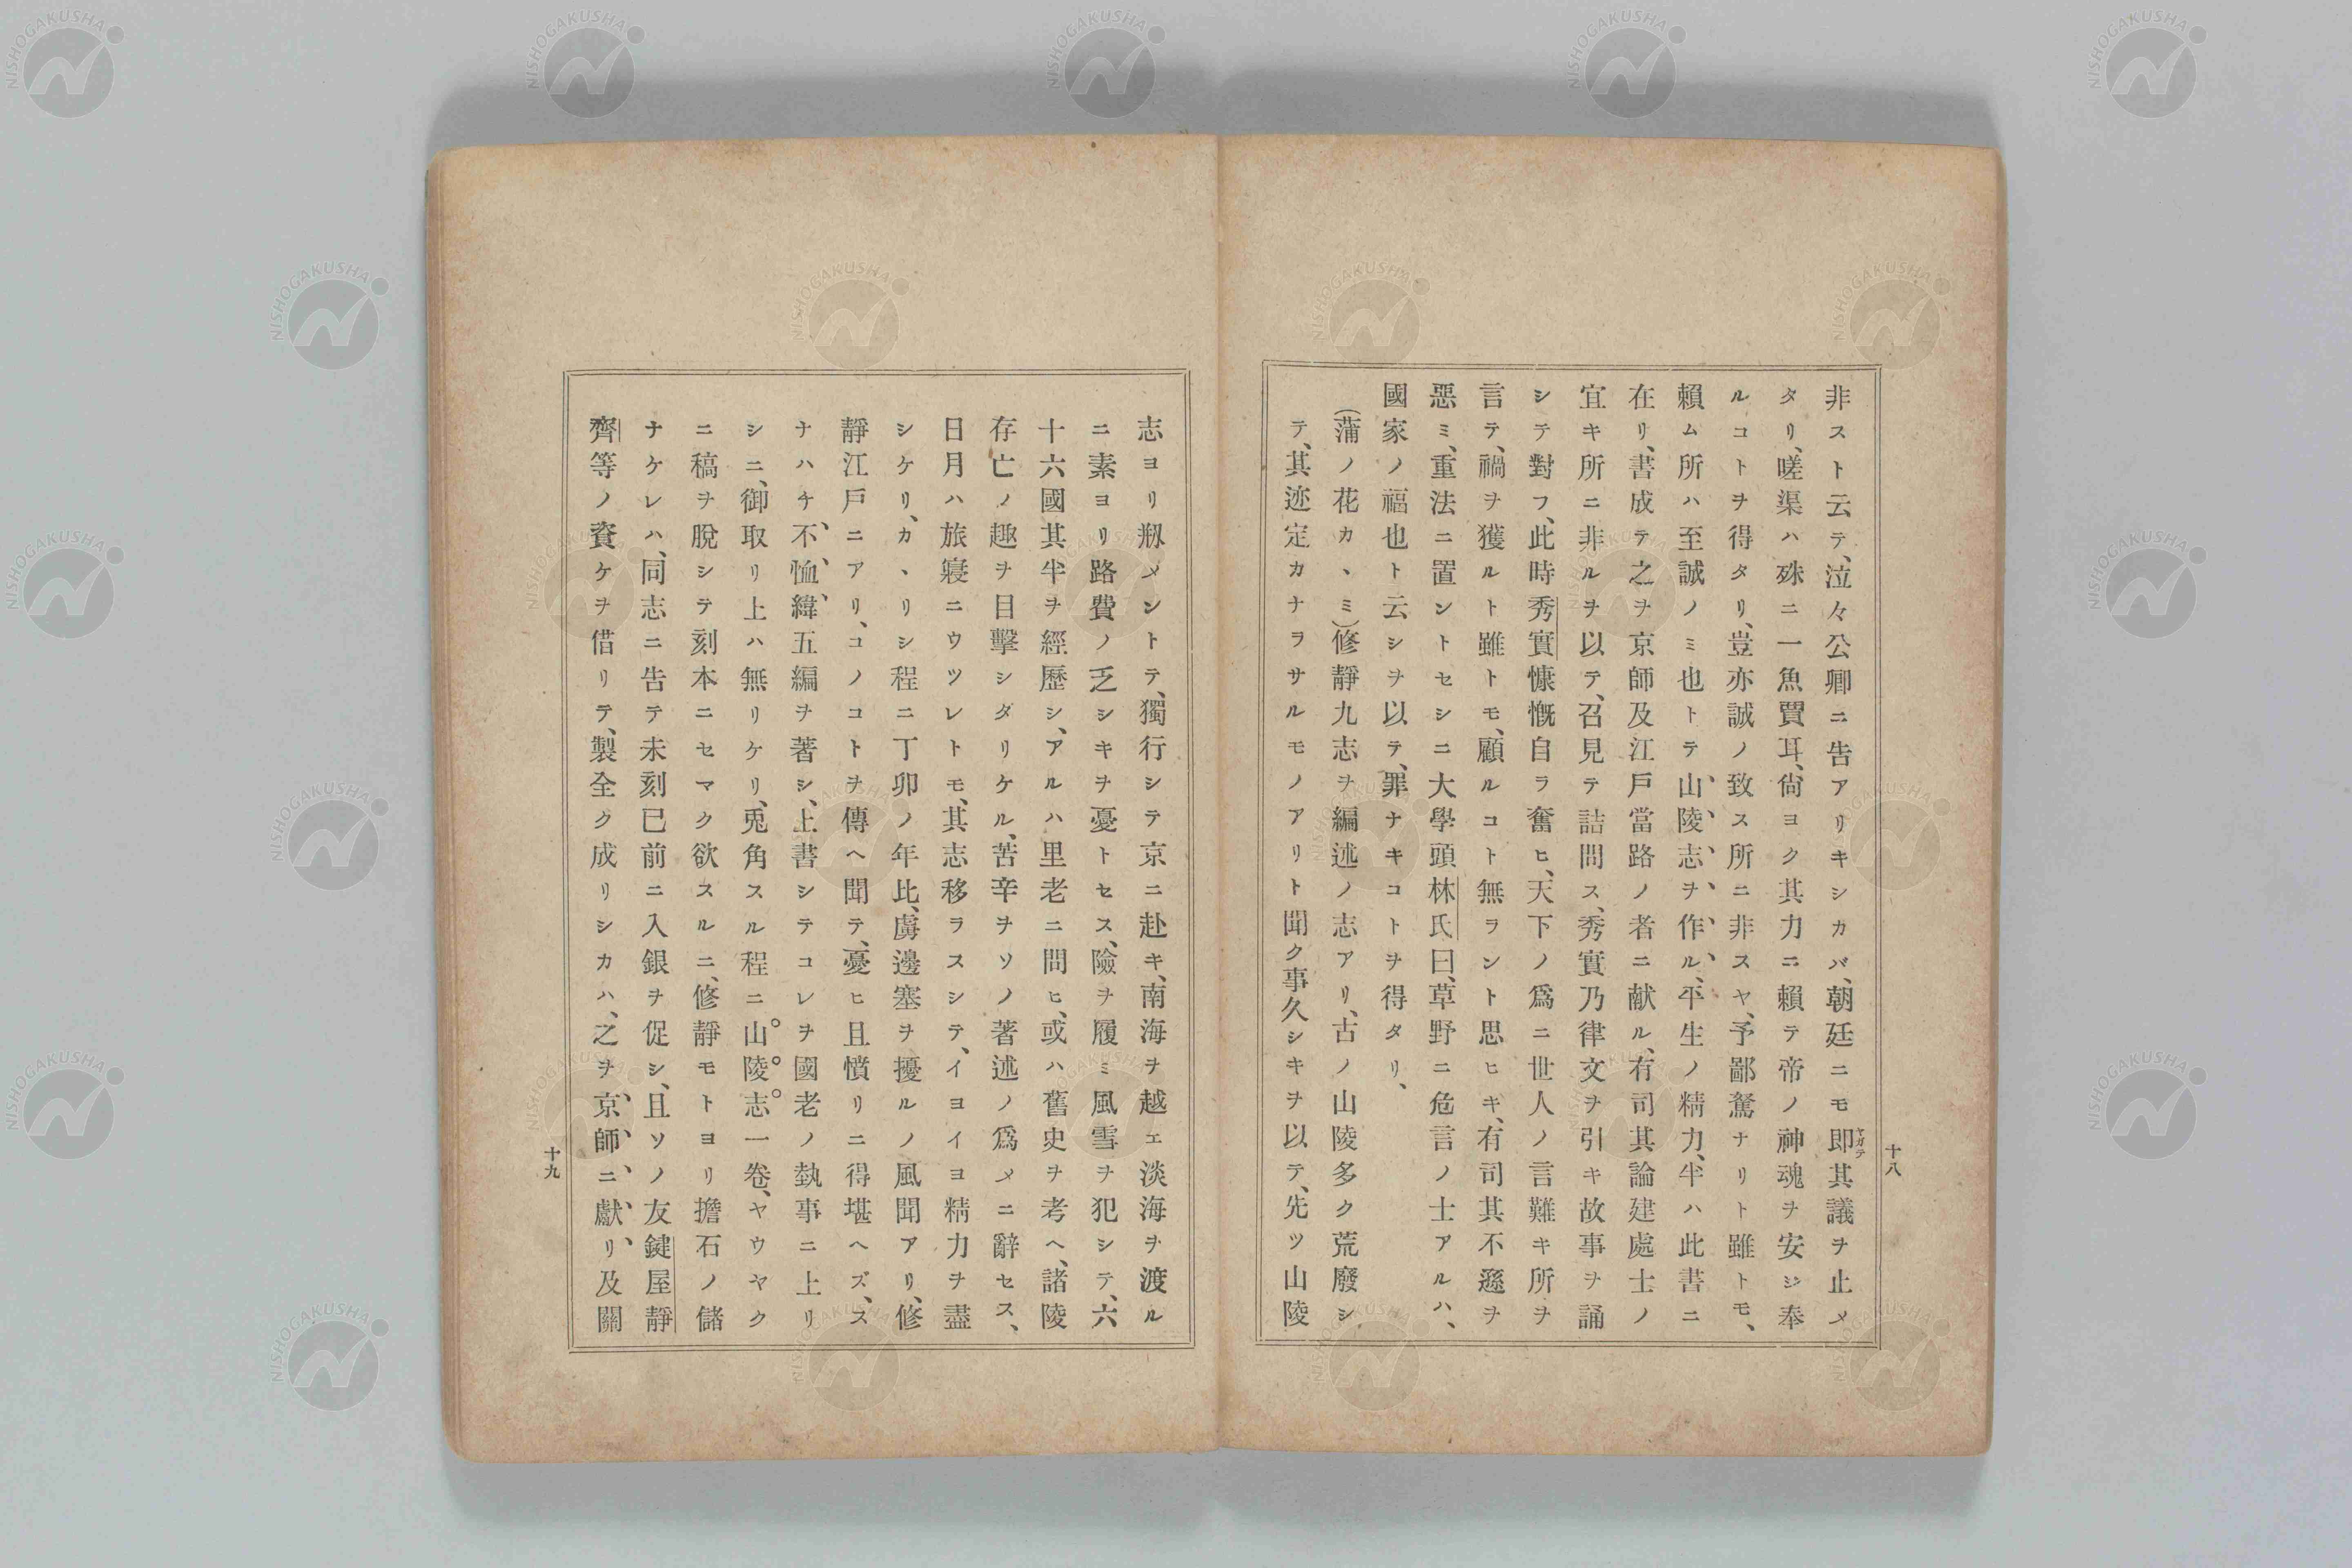 十八
非スト云テ、泣々公卿ニ告アリキシカバ、朝廷ニモ即其議ヲ止メ
ヤガテ
タリ、嗟渠ハ殊ニ一魚賈耳、尙ヨク其力ニ賴テ帝ノ神魂ヲ安ジ奉
ルコトヲ得タリ、豈亦誠ノ致ス所ニ非スヤ、予鄙駑ナリト雖トモ、
賴ム所ハ至誠ノミ也トテ山陵志ヲ作ル、平生ノ精力、半ハ此書ニ
在リ、書成テ之ヲ京師及江戶當路ノ者ニ献ル、有司其論建處士ノ
宜キ所ニ非ルヲ以テ、召見テ詰問ス、秀實乃律文ヲ引キ故事ヲ誦
シテ對フ、此時秀實慷慨自ラ奮ヒ、天下ノ爲ニ世人ノ言難キ所ヲ
言テ、禍ヲ獲ルト雖トモ、顧ルコト無ラント思ヒキ、有司其不遜ヲ
惡ミ、重法ニ置ントセシニ大學頭林氏曰、草野ニ危言ノ士アルハ、
國家ノ福也ト云シヲ以テ、罪ナキコトヲ得タリ、
(蒲ノ花カヽミ)修靜九志ヲ編述ノ志アリ、古ノ山陵多ク荒廢シ
テ、其迹定カナラサルモノアリト聞ク事久シキヲ以テ、先ツ山陵
志ヨリ剏メントテ、獨行シテ京ニ赴キ、南海ヲ越エ淡海ヲ渡ル
ニ素ヨリ路費ノ乏シキヲ憂トセス、險ヲ履ミ風雪ヲ犯シテ、六
十六國其半ヲ經歷シ、アルハ里老ニ問ヒ、或ハ舊史ヲ考ヘ、諸陵
存亡ノ趣ヲ目擊シダリケル、苦辛ヲソノ著述ノ爲メニ辭セス、
日月ハ旅寢ニウツレトモ、其志移ラスシテ、イヨイヨ精力ヲ盡
シケリ、カヽリシ程ニ丁卯ノ年比、虜邊塞ヲ擾ルノ風聞アリ、修
靜江戶ニアリ、コノコトヲ傳ヘ聞テ、憂ヒ且憤リニ得堪ヘズ、ス
ナハチ不恤緯五編ヲ著シ、上書シテコレヲ國老ノ執事ニ上リ
シニ、御取リ上ハ無リケリ、兎角スル程ニ山陵志一卷、ヤウヤク
ニ稿ヲ脫シテ刻本ニセマク欲スルニ、修靜モトヨリ擔石ノ儲
ナケレハ、同志ニ告テ未刻已前ニ入銀ヲ促シ、且ソノ友鍵屋靜
齊等ノ資ケヲ借リテ、製全ク成リシカハ、之ヲ京師ニ獻リ、及關
十九